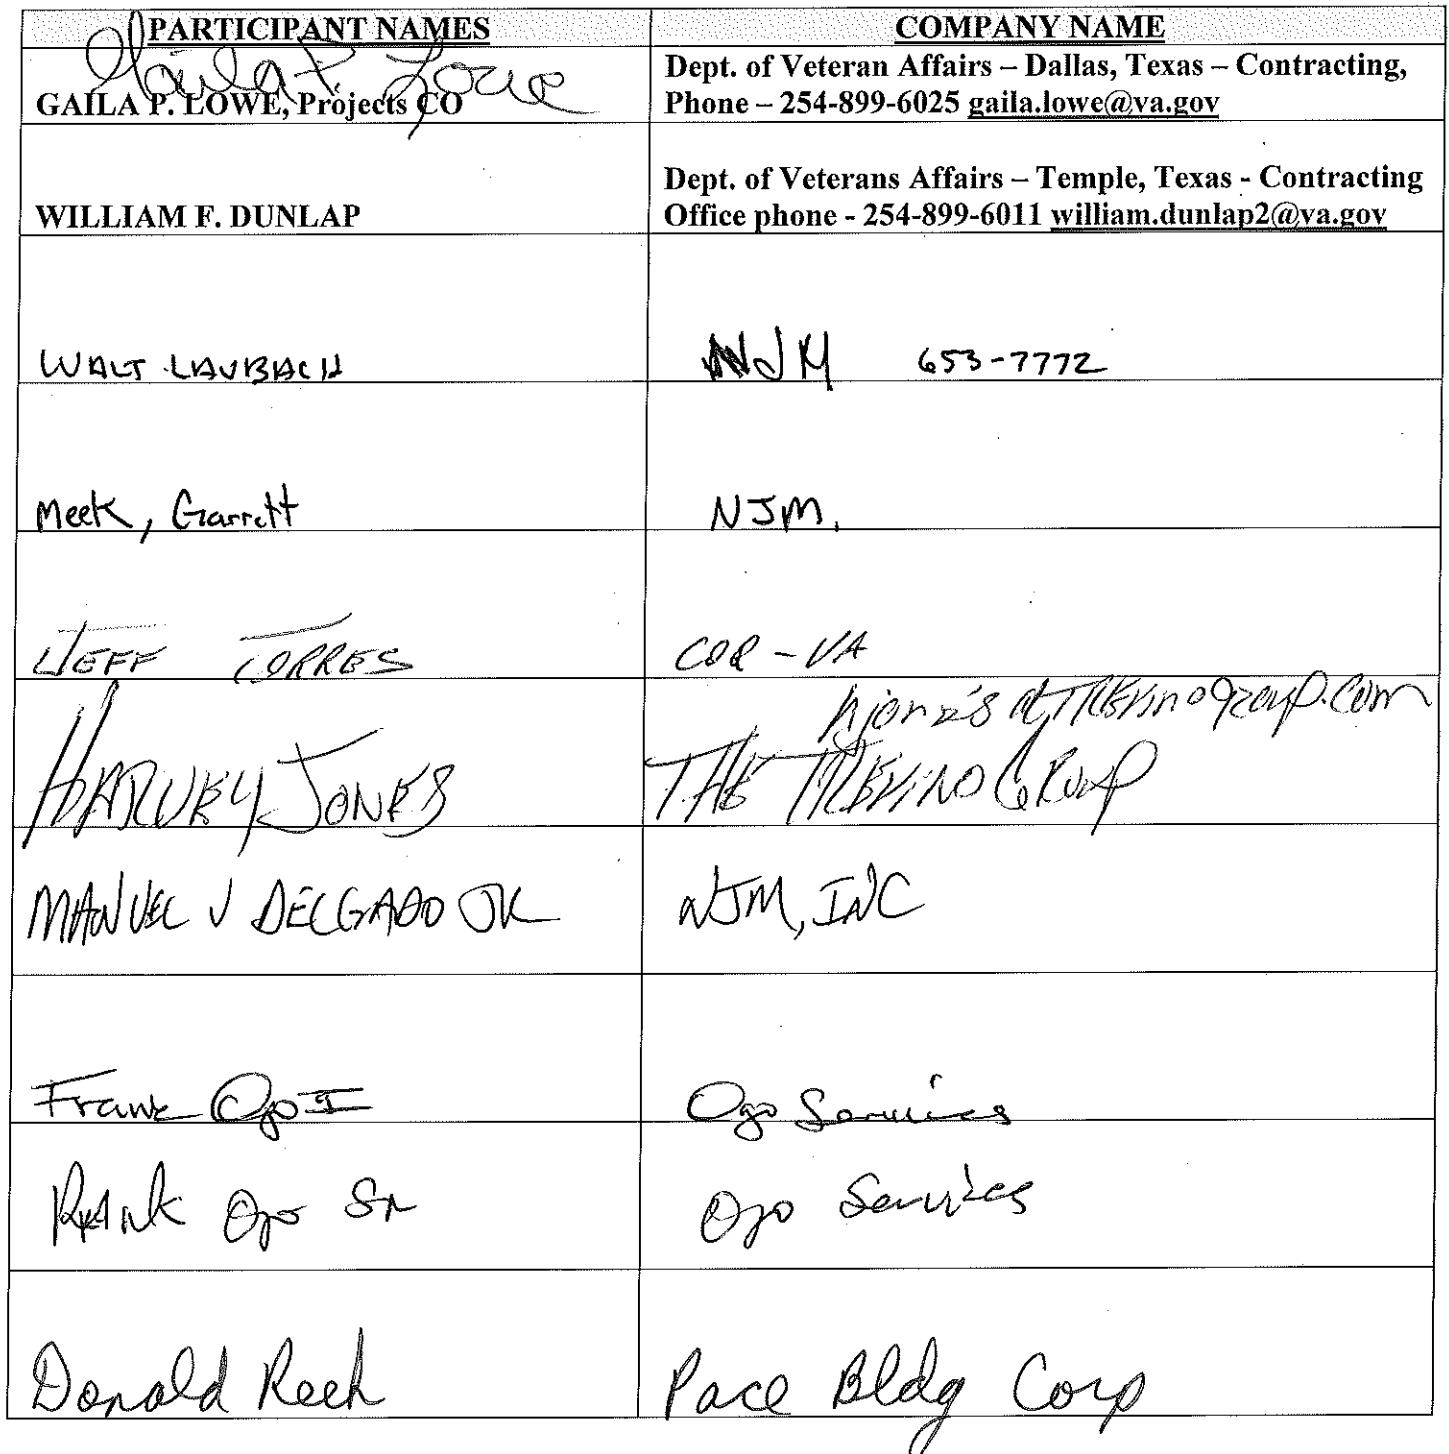 PARTICIPANT NAMES COMPANY NAME
Gaila P. Lowe
GAILA P. LOWE, Projects CO
Dept. of Veteran Affairs – Dallas, Texas – Contracting,
Phone – 254-899-6025 gaila.lowe@va.gov
WILLIAM F. DUNLAP
Dept. of Veterans Affairs – Temple, Texas - Contracting
Office phone - 254-899-6011 william.dunlap2@va.gov
WALT LAUBACH NJM 653-7772
Meek, Garrett NJM.
JEFF TORRES COR-VA
HARVEY JONES
THE TREVINO GROUP
MANUEL V DELGADO JR NJM, INC
Frank Ojo I Ojo Services
FRANK Ojo SR Ojo Services
Donald Reeh Pace Bldg Corp